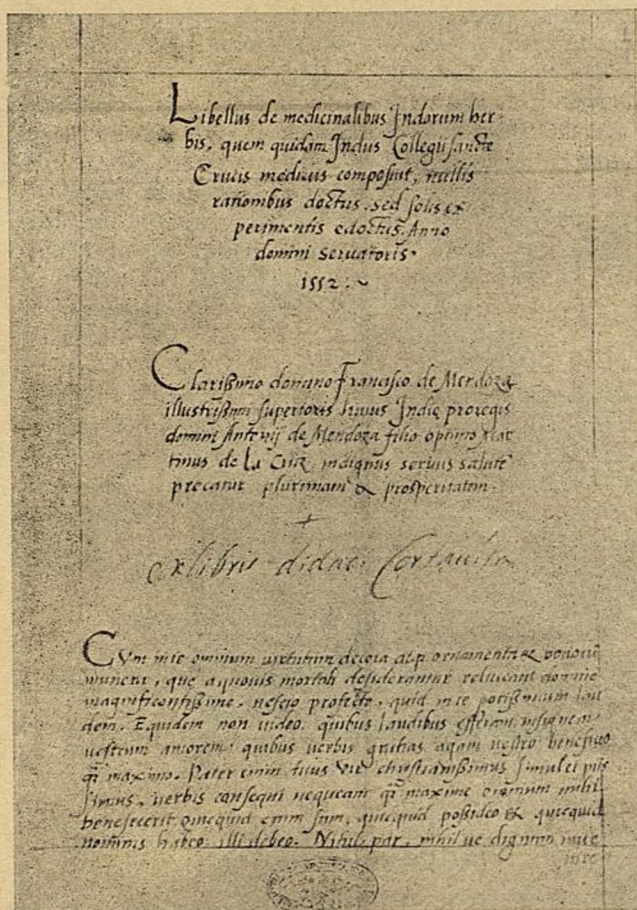 Libellus de medicinalibus Indorum her-
bis, quem quidam Indus Collegii sancte
Crucis medicus composuit, nullis
rationibus doctus, sed solis ex
perimentis edoctus. Anno
domini servatoris.
1552.
Clarißimo domino Francisco de Mendoza
illustrißimi superioris huius Indię proregis
domini Antonij de Mendoza filio optimo Mar
tinus de la Cruz indignus servus salutē
precatur plurimam & prosperitatem.
+
ex libris didaci Cortavila
Cum in te omnium virtutum decora atq3 ornamenta & bonorū
munera, que a quovis mortali desiderantur reluceant domine
magnificentißime, nescio profecto, quid in te potißimum lau
dem. Equidem non video, quibus laudibus efferam insignem
vestrum amorem, quibus verbis gratias agam vestro beneficio
q̄ maximo. Pater enim tuus vir christianißimus simul et piis
simus, verbis consequi nequeam q̄ maxime omnium mihi
benefecerit quicquid enim sum, quicquid poßideo & quicquid
nominis habeo illi debeo. Nihil par, nihil ve dignum